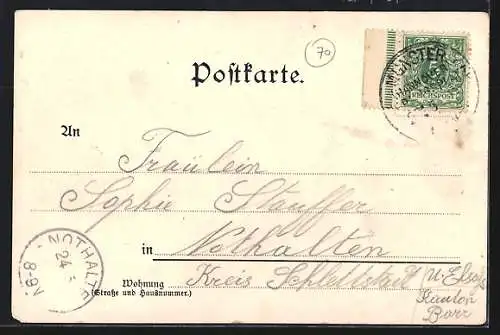 70
Postkarte.
REICHSPOST
An
Fräulein
Sophie Stauffer
in Nothalten
Wohnung
(Straße und Hausnummer.)
Kreis Schlettstadt
U. Elsaß
Kanton
Barr
NOTHALTEN
24
8-9